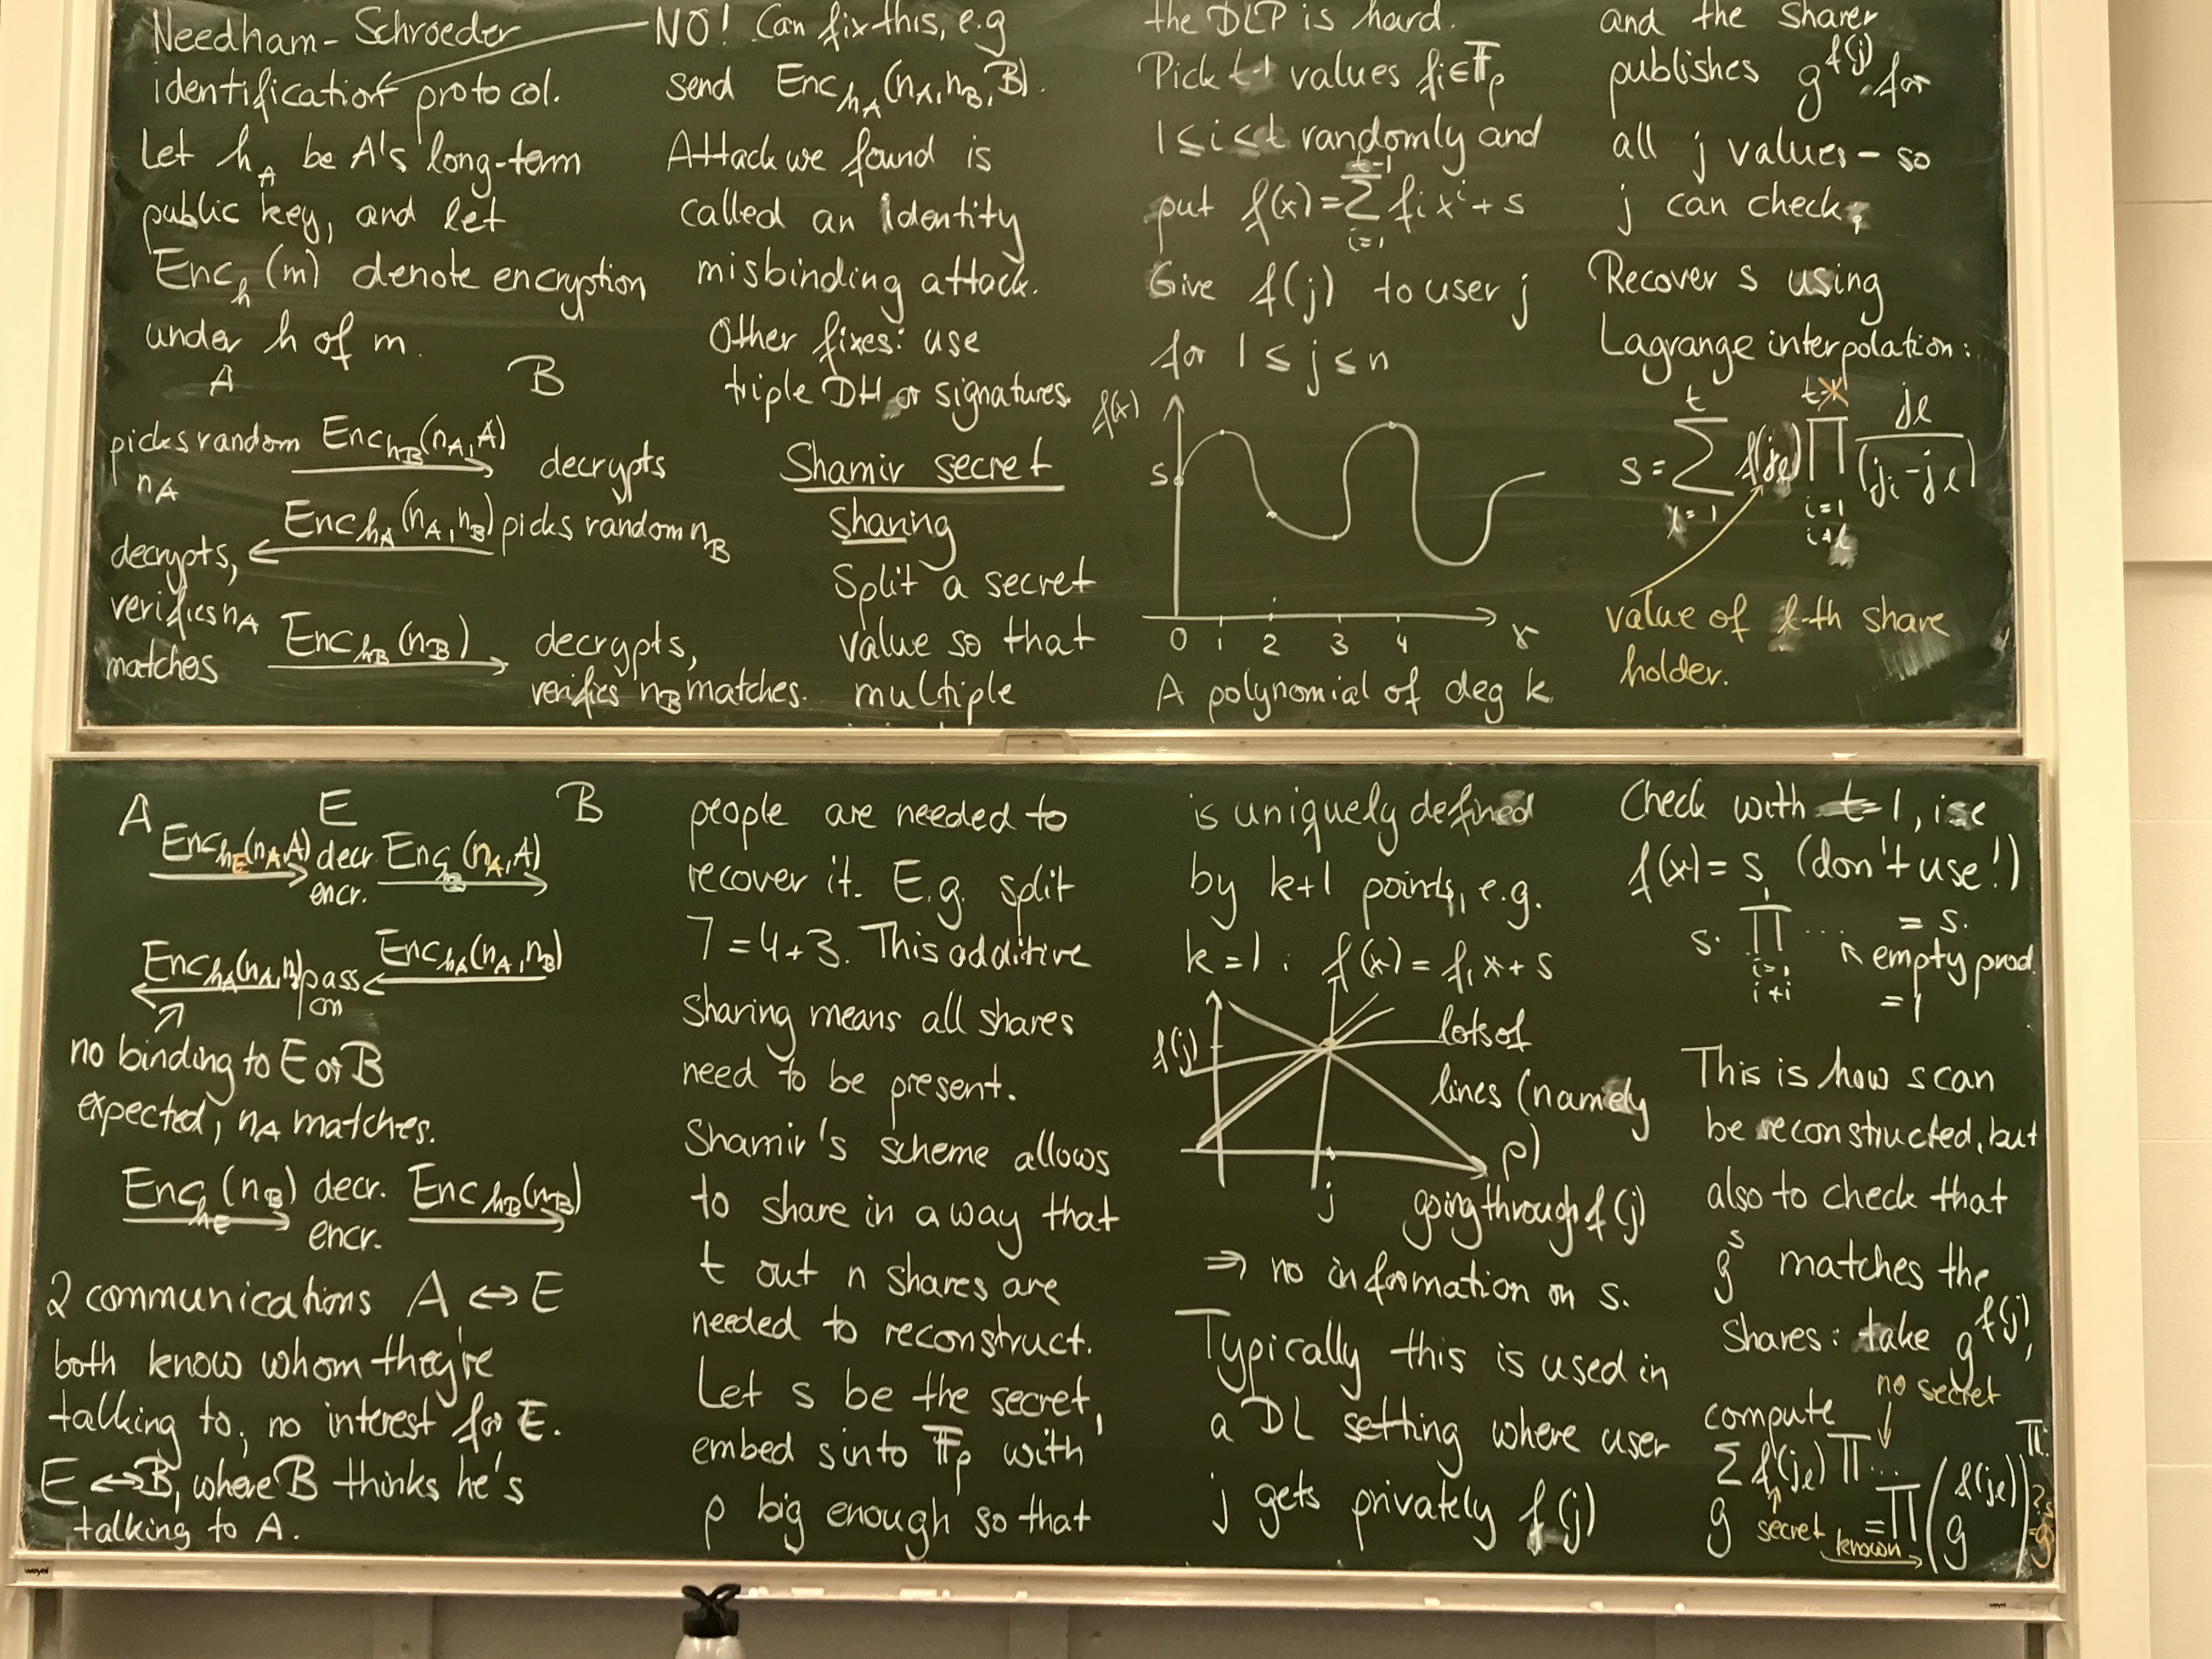 Needham-Schroeder
identification protocol.
Let h_A be A's long-term
public key, and let
Enc_h(m) denote encryption
under h of m.
A B
picks random n_A Enc_{h_B}(n_A, A) decrypts
Enc_{h_A}(n_A, n_B) picks random n_B
decrypts,
verifies n_A
matches
Enc_{h_B}(n_B) decrypts,
verifies n_B matches.
A E B
Enc_{h_E}(n_A, A) decr. Enc_{h_B}(n_A, A)
encr.
Enc_{h_A}(n_A, n_B) pass Enc_{h_A}(n_A, n_B)
on
no binding to E or B
expected; n_A matches.
Enc_{h_E}(n_B) decr. Enc_{h_B}(n_B)
encr.
2 communications A ↔ E
both know whom they're
talking to; no interest for E.
E ↔ B, where B thinks he's
talking to A.
NO! Can fix this, e.g
send Enc_{h_A}(n_A, n_B, B).
Attack we found is
called an identity
misbinding attack.
Other fixes: use
triple DH or signatures.
Shamir secret
sharing
Split a secret
value so that
multiple
people are needed to
recover it. E.g. split
7 = 4 + 3. This additive
sharing means all shares
need to be present.
Shamir's scheme allows
to share in a way that
t out n shares are
needed to reconstruct.
Let s be the secret,
embed s into F_p with
p big enough so that
the DLP is hard.
Pick t-1 values f_i ∈ F_p
1 ≤ i < t randomly and
put f(x) = Σ_{i=1}^{t-1} f_i x^i + s
Give f(j) to user j
for 1 ≤ j ≤ n
f(x)
s
0 1 2 3 4 x
A polynomial of deg k
is uniquely defined
by k+1 points, e.g.
k = 1 : f(x) = f_1 x + s
f(j) lots of
lines (namely
p)
j going through f(j)
⇒ no information on s.
Typically this is used in
a DL setting where user
j gets privately f(j)
and the sharer
publishes g^{f(j)} for
all j values - so
j can check.
Recover s using
Lagrange interpolation:
s = Σ_{l=1}^{t} f(j_l) Π_{i=1, i≠l}^{t} j_l/(j_i - j_l)
value of l-th share
holder.
Check with t = 1, i.e
f(x) = s (don't use!)
s · Π_{i=1, i≠i}^{1} ... = s.
empty prod.
= 1
This is how s can
be reconstructed, but
also to check that
g^s matches the
shares: take g^{f(j)},
no secret
compute
g^{Σ f(j_l) Π...} = Π (g^{f(j_l)})^{Π...} ?= g^s
secret known